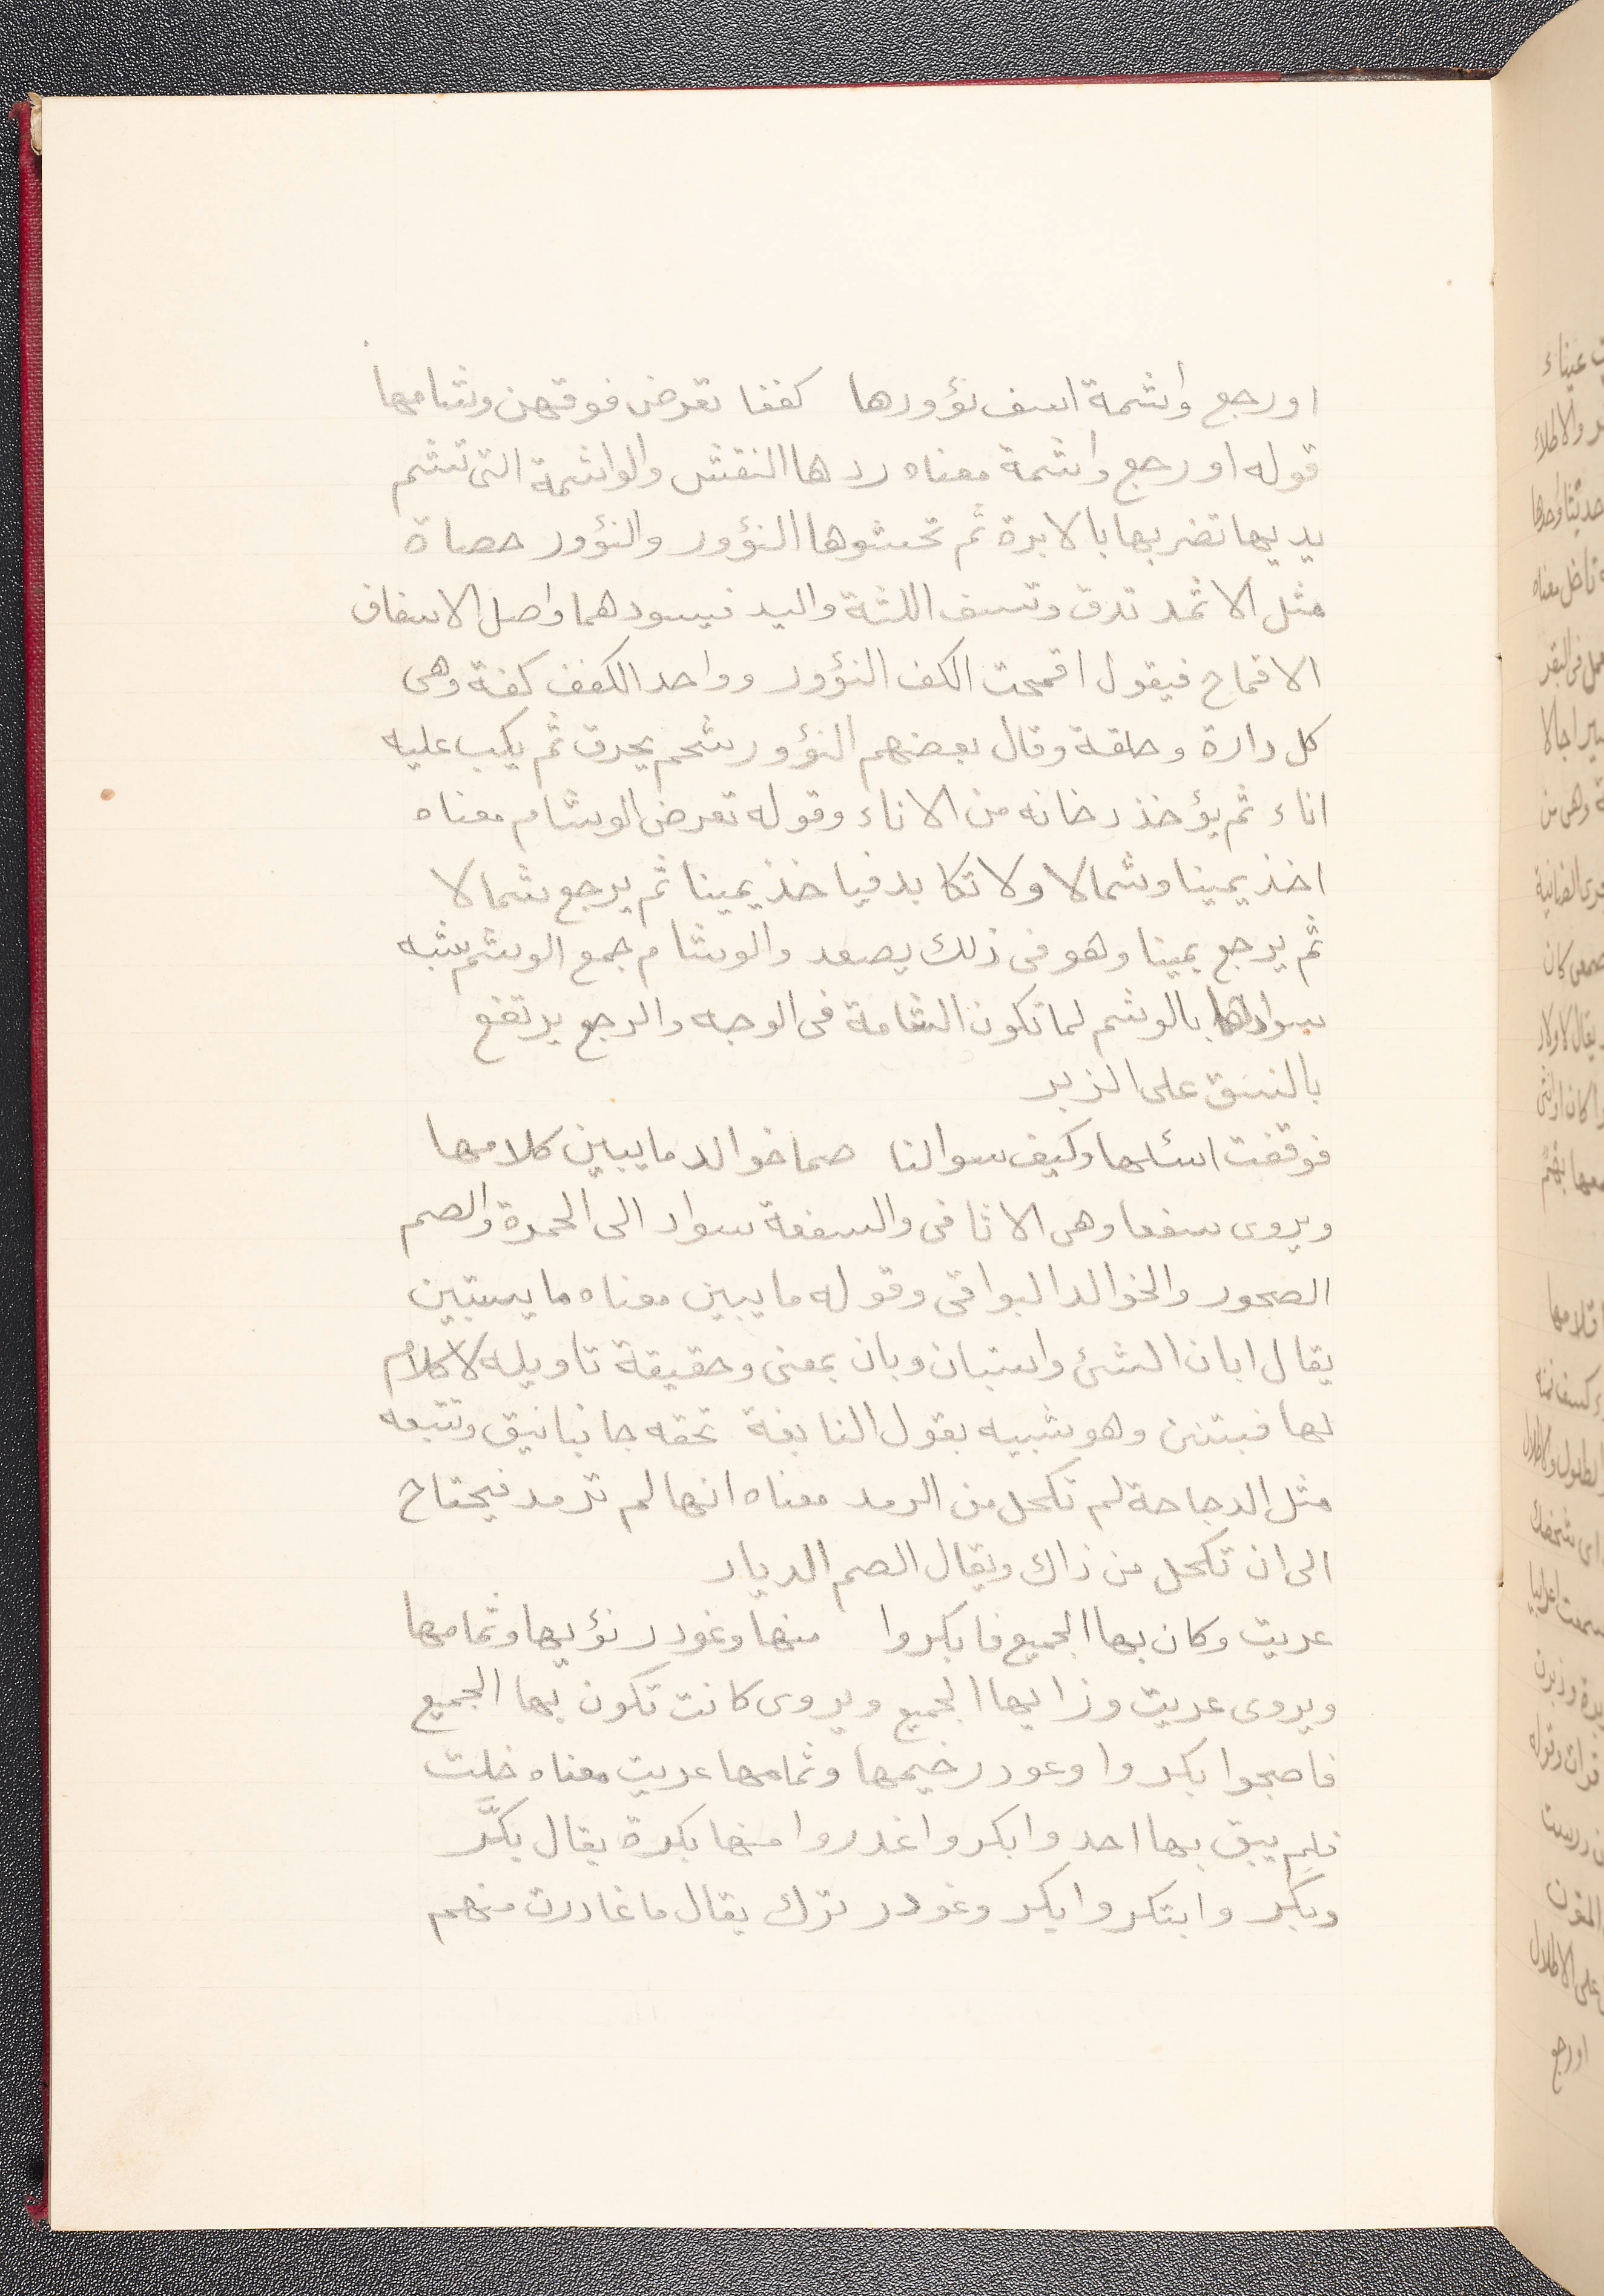 اورجع واشمة اسف نؤورها   كففا تعرض فوقهن وشامها
قوله اورجع واشمة معناه ردها النقش والواشمة التى تشم
يديها تضربها بالابرة ثم تحشوها النؤور والنؤور حصاة
مثل الاثمد تدق وتسف اللثة واليد فيسودهما واصل الاسفاف
الاقماح فيقول اقمحت الكف النؤور وواحد الكفف كفة وهى
كل دارة وحلقة وقال بعضهم النؤور شحم يحرق ثم يكب عليه
اناء ثم يؤخذ دخانه من الاناء وقوله تعرض الوشام معناه
اخذ يمينا وشمالا ولا تكابد فياخذ يمينا ثم يرجع شمالا
ثم يرجع يمينا وهو فى ذلك يصعد والوشام جمع الوشم شبه
سوادها بالوشم لما تكون الشامة فى الوجه والرجع يرتفع
بالنسق على الزبر
فوقفت اسئلها وكيف سوالنا   صما خوالد ما يبين كلامها
ويروى سفعا وهى الاثافى والسفعة سواد الى الحمرة والصم
الصخور والخوالد البواقى وقوله ما يبين معناه ما يستبين
يقال ابان الشئ واستبان وبان بمعنى وحقيقة تاويله لا كلام
لها فبتنن وهو شبيه بقول النابغة تحفه جانبا نيق وتتبعه
مثل الزجاجة لم تكحل من الرمد معناه انها لم ترمد فيحتاج
الى ان تكحل من ذاك ويقال الصم الديار
عريت وكان بها الجميع فابكروا   منها وغودر نؤيها وثمامها
ويروى عريت وزايها الجميع ويروى كانت تكون بها الجميع
فاصبحوا بكروا وغودر خيمها وثمامها عريت معناه خلت
فلم يبق بها احد وابكروا غدروا منها بكرة يقال بكَّر
وبكر وابتكر وابكر وغودر ترك يقال ما غادرت منهم